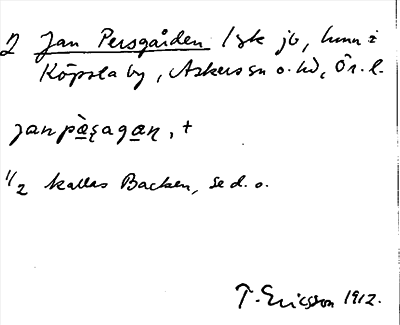 Jan Persgården 1 sk jo, hmn i
Köpsta by, Askers sn o. hd, Ör. l.
janpæ̀ṣagaṇ, +
1/2 kallas Backen, se d. o.
T. Ericsson 1912.